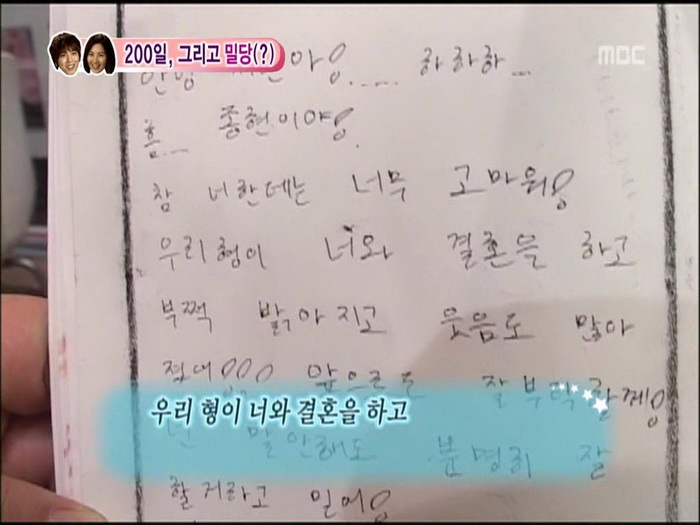 200일, 그리고 밀당(?)
MBC
하하하...
흠.... 종현이야!
참 너한테는 너무 고마워!
우리형이 너와 결혼을 하고
부쩍 밝아지고 웃음도 많아
졌대!!! 앞으로도 잘부탁할께!
우리 형이 너와 결혼을 하고
넌 말안해도 분명히 잘
할거라고 믿어!